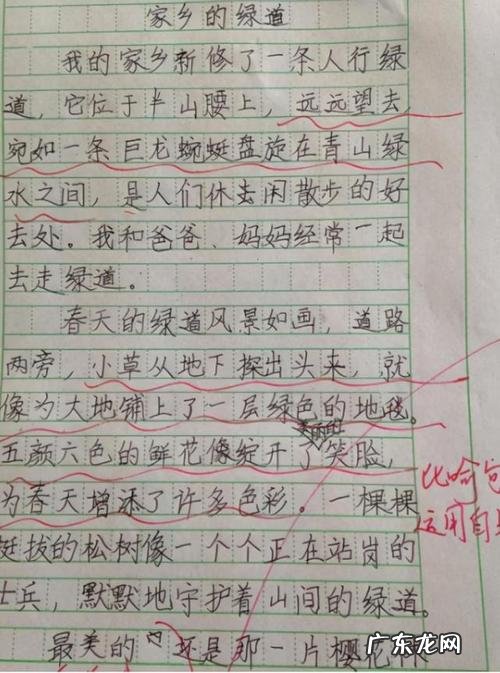 家乡的绿道
我的家乡新修了一条人行绿
道，它位于半山腰上，远远望去，
宛如一条巨龙蜿蜒盘旋在青山绿
水之间，是人们休去闲散步的好
去处。我和爸爸、妈妈经常一起
去走绿道。
春天的绿道风景如画，道路
两旁，小草从地下探出头来，就
像为大地铺上了一层绿色的地毯。
五颜六色的鲜花像绽开了笑脸，
为春天增添了许多色彩。一棵棵
比喻句
挺拔的松树像一个个正在站岗的
运用自
士兵，默默地守护着山间的绿道。
最美的还是那一片樱花林
广东龙网